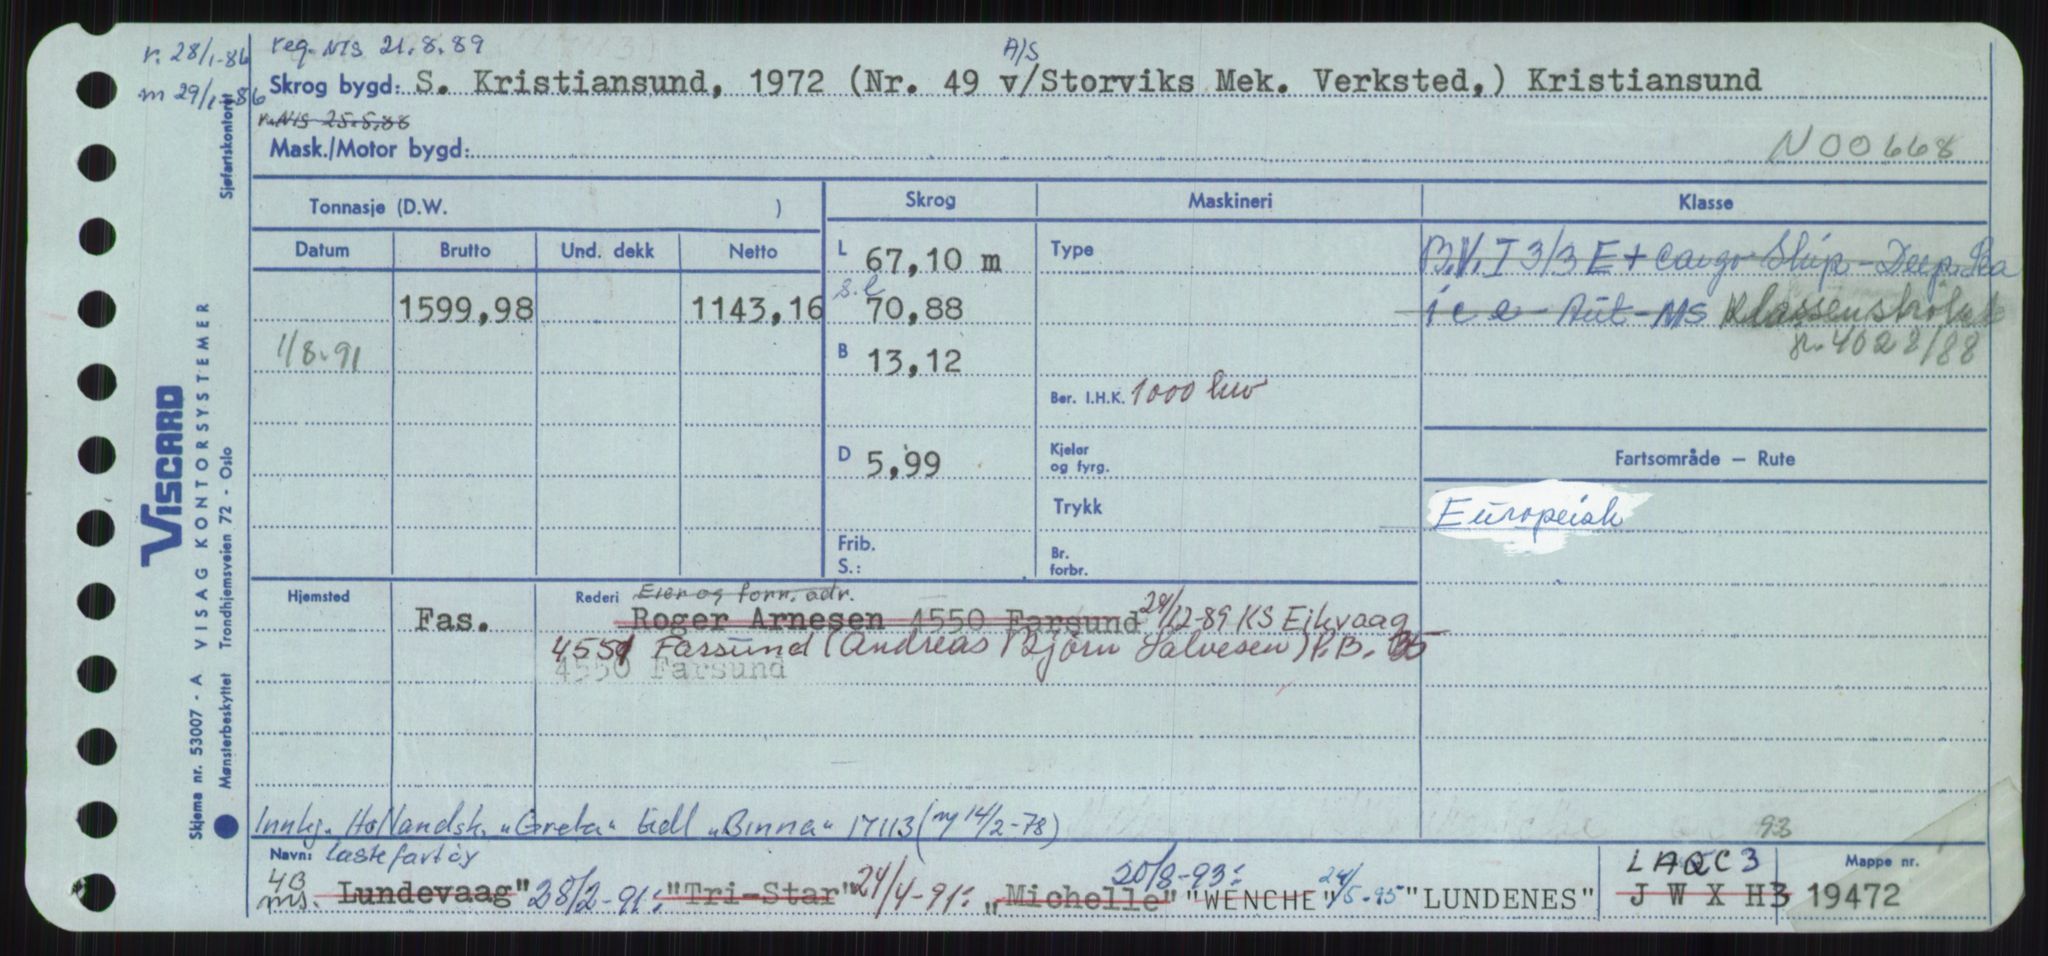 r. 28/1-86 reg. NIS 21.8.89 A/S
m 29/1-86 Skrog bygd: S. Kristiansund, 1972 (Nr. 49 v/Storviks Mek. Verksted,) Kristiansund
r. NIS 25.5.88
Mask./Motor bygd: N00668
Tonnasje (D.W. ) Skrog Maskineri Klasse
Datum Brutto Und. dekk Netto
L 67,10 m Type B.V. I 3/3 E + Cargo Ship - Deep Sea
1599,98 1143,16 s.l 70,88 ice - Aut - MS Klassen
1/8.91 B 13,12 4028/88
Ber. I.H.K. 1000
D 5,99 Kjeler og fyrg. Fartsområde — Rute
Trykk Europeisk
Frib. S.: Br. forbr.
Hjemsted Rederi Eier og forr. adr.
Fas. Roger Arnesen 4550 Farsund 29/12-89 KS Eikvaag
4551 Farsund (Andreas Bjørn Salvesen) P.B. 35
4550 Farsund
Innkj. Hollandsk. "Greta" tidl "Binna" 17113 (ny 14/2-78)
93
Navn: lastefartøy LAQC3 Mappe nr.
4B ms. Lundevaag" 28/2-91: "Tri-Star" 24/4-91: "Michelle" 20/8-93: "WENCHE" 24/5-95 "LUNDENES" J W X H 3 19472
VISCARD
VISAG KONTORSYSTEMER
Skjema nr. 53007 - A
Mønsterbeskyttet Trondhjemsveien 72 - Oslo
Sjøfartskontoret